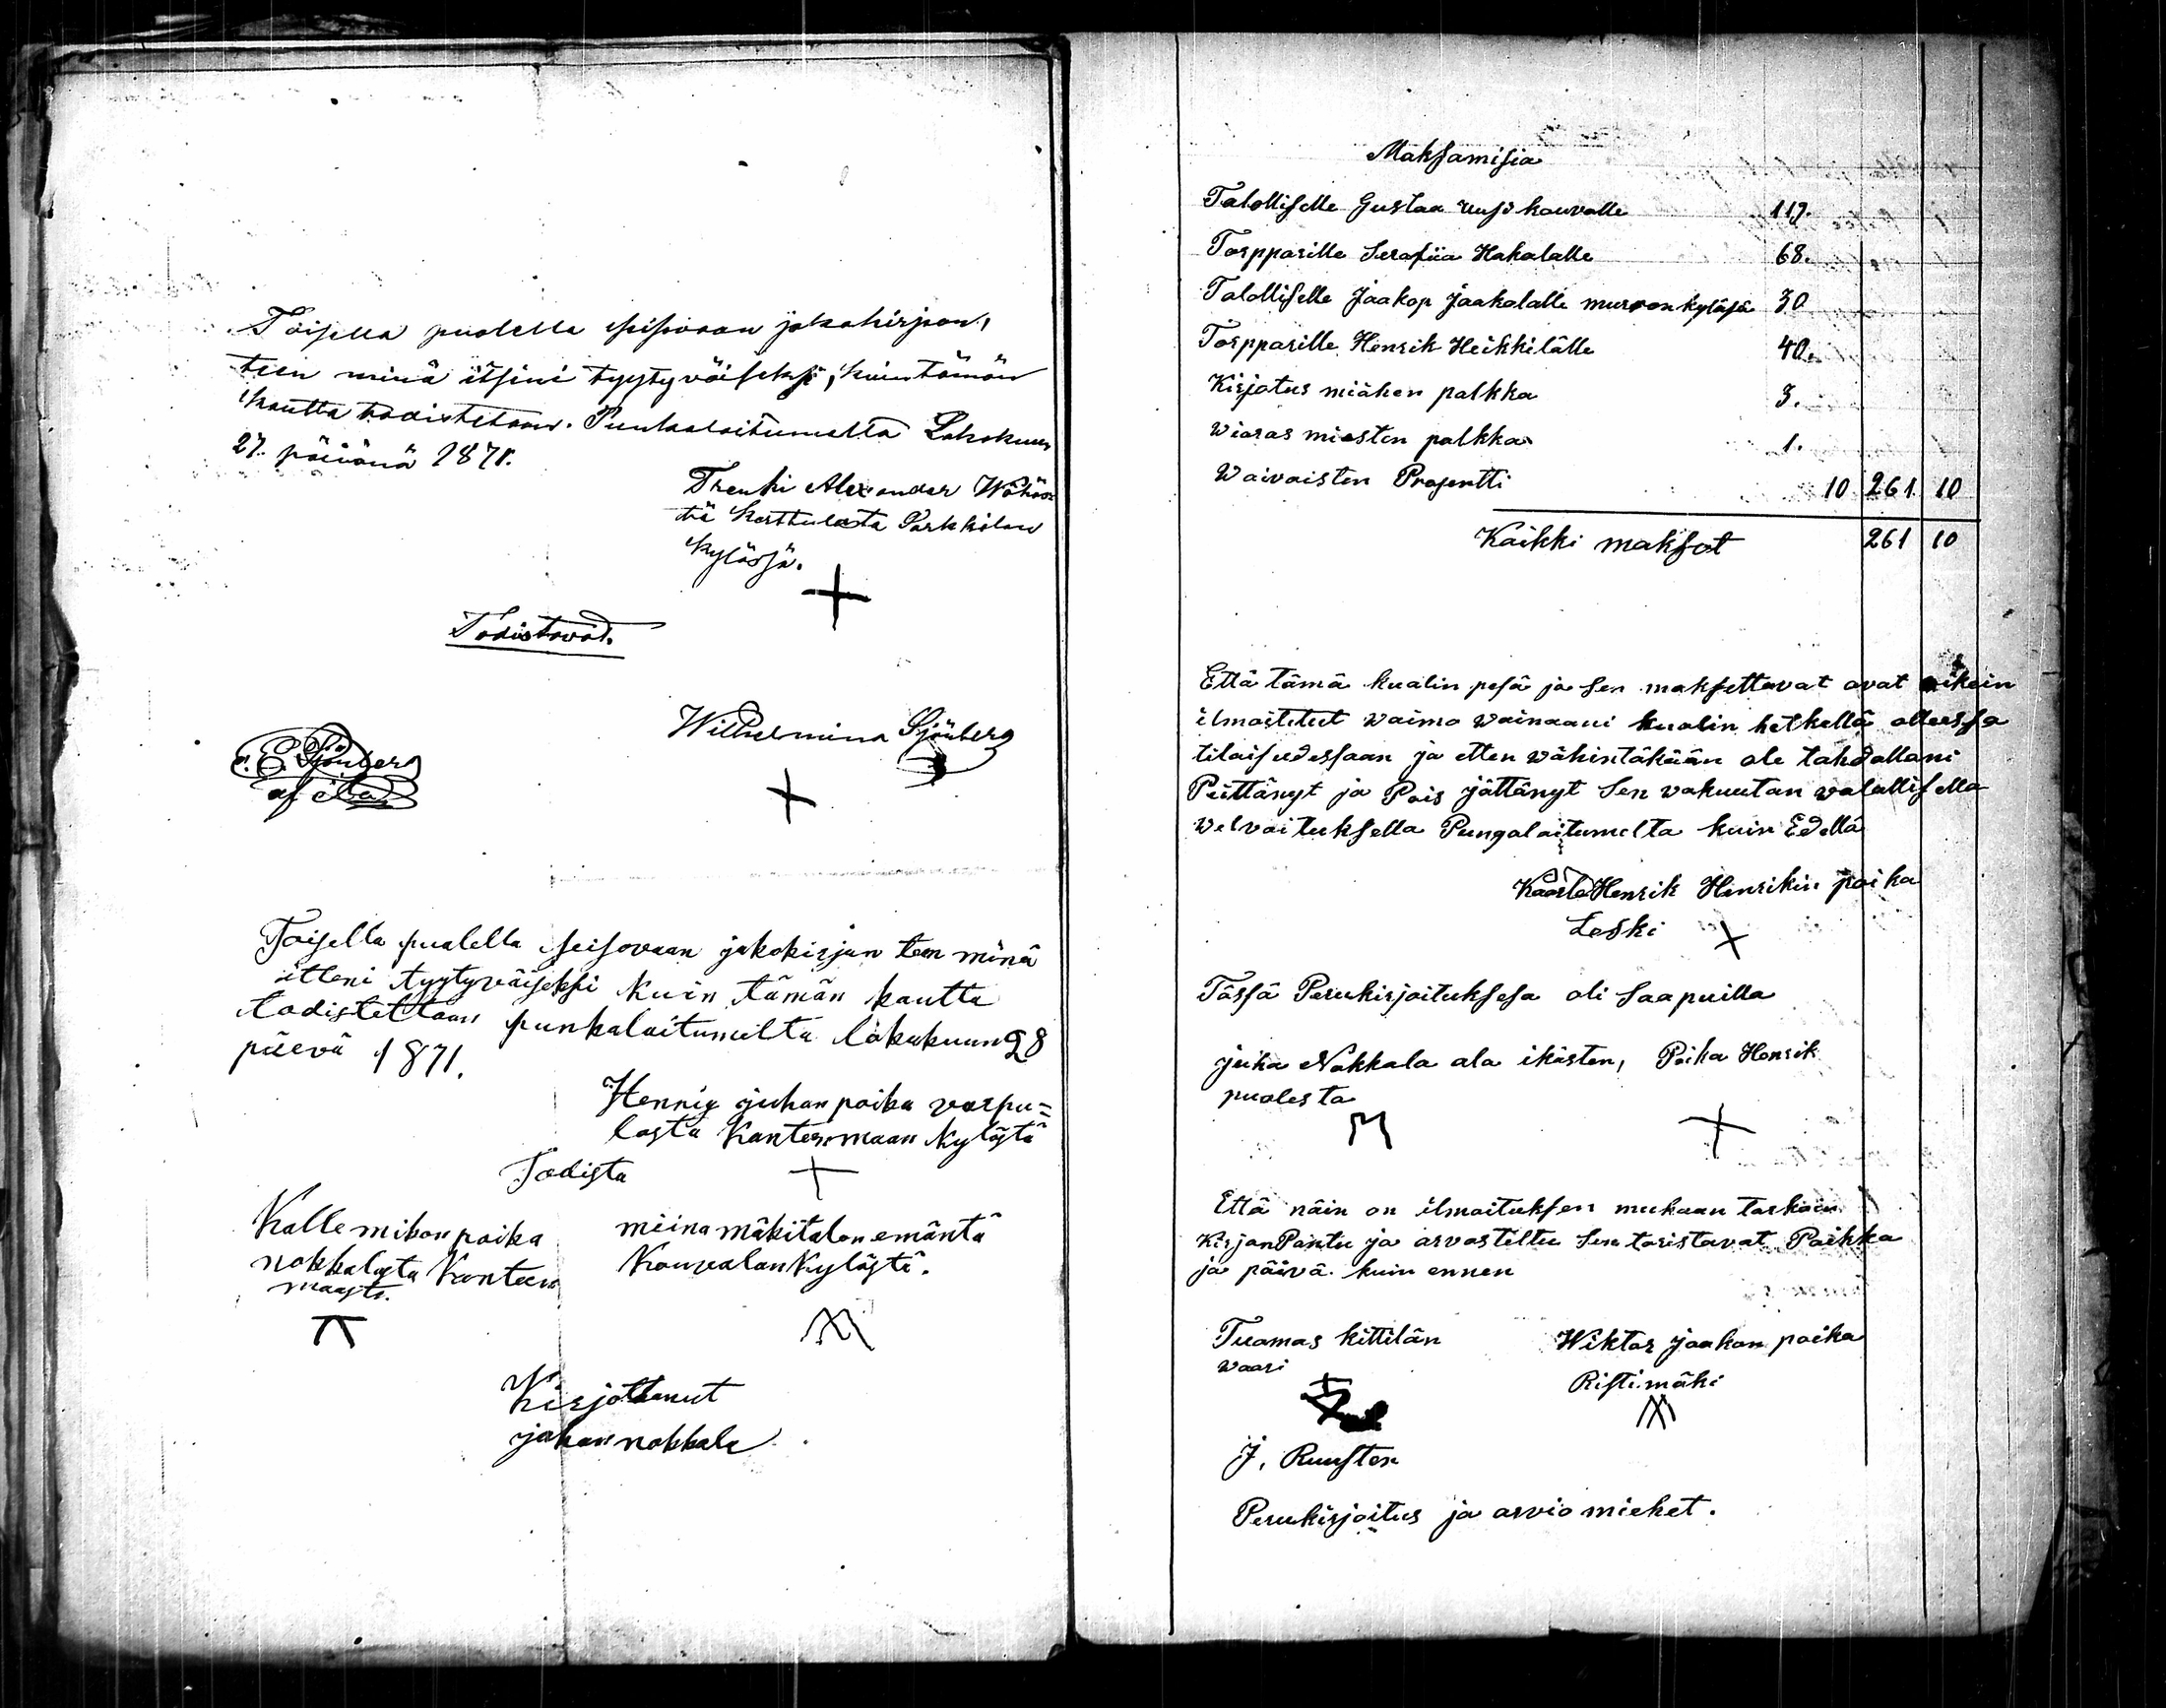 Toisella puolella seisovaan jakokirjaan,
teen minä itsini tyytyväiseksi, kuin tämän
kautta todistetaan. Punkalaitumelta Lokakuun
27. päivänä 1871.
Trenki Alexander Wähä
Karttulasta Parkkilan
kylässä.
Todistavat.
Wilhelmina Sjöuberg
E. Sjöuberg
Toisella puolella seisovaan jakokirjan teen minä
itteni tyytyväiseksi kuin tämän kautta
todistettaan punkalaitumelta lokakuun 28
päevä 1871.
Hennig juhan poika varpu=
lasta Kanteenmaan kylästä
Todista
Kalle mikon poika
nokkalasta Kanteen
maasta.
miina mäkitalon emäntä
Kouvolan kylästä.
Kirjottanut
johan nokkala
Maksamisia
Talolliselle Gustaa uusikouvalle 119.
Torpparille Serafiia Hakalalle 68.
Talolliselle Jaakop Jaakolalle muroon kyläsä 30
Torpparille Henrik Heikkilälle 40.
Kirjotus miähen palkka 3.
Wieras miesten palkka 1.
Waivaisten Prosentti 10 261 10
Kaikki maksut 261 10
Että tämä kualin pesä ja sen maksettavat ovat oikein
ilmoitetut waimo wainaani kualin hetkellä olleessa
tilaisudessaan ja etten wähintäkään ole tahdollani
Peittänyt ja Pois jättänyt sen vakuutan valallisella
welvoituksella Pungalaitumelta kuin Edellä
Kaarle Henrik Henrikin poika
Leski
Tässä Perukirjoituksesa oli saapuilla
juha Nokkala ala ikästen, Poika Henrik
puolesta
Että näin on ilmoituksen mukaan tarkoin
KirjanPantu ja arvosteltu sen toristavat Paikka
ja päivä kuin ennen
Tuomas kittilän
waari
Wiktor jaakon poika
Ristimäki
J. Ruusten
Perukirjoitus ja arvio miehet.